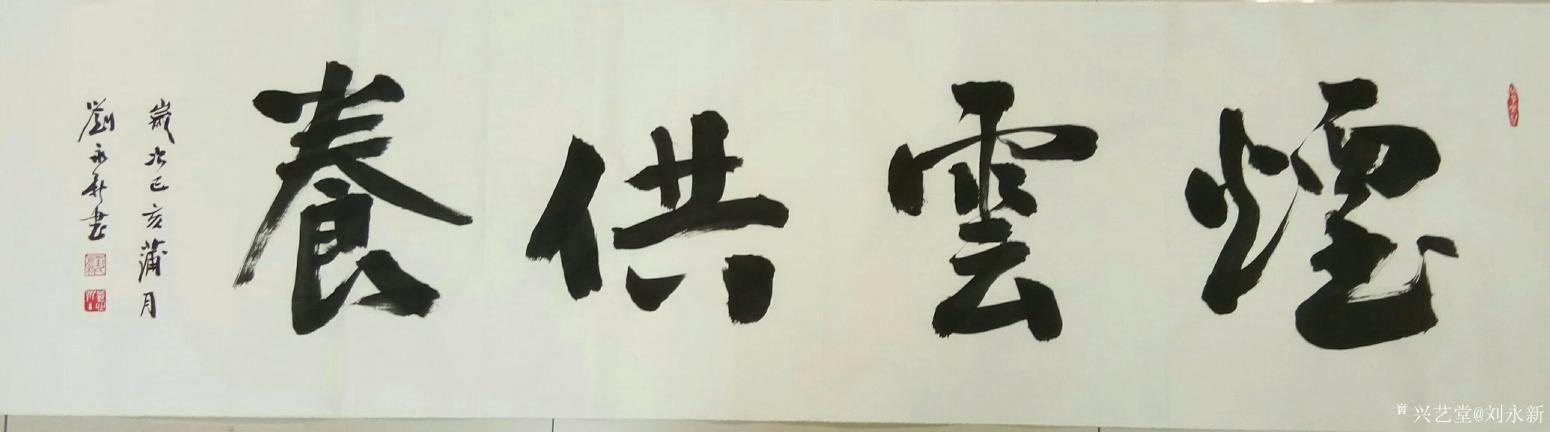 煙雲供養
歲次己亥蒲月
劉永新書
兴艺堂@刘永新